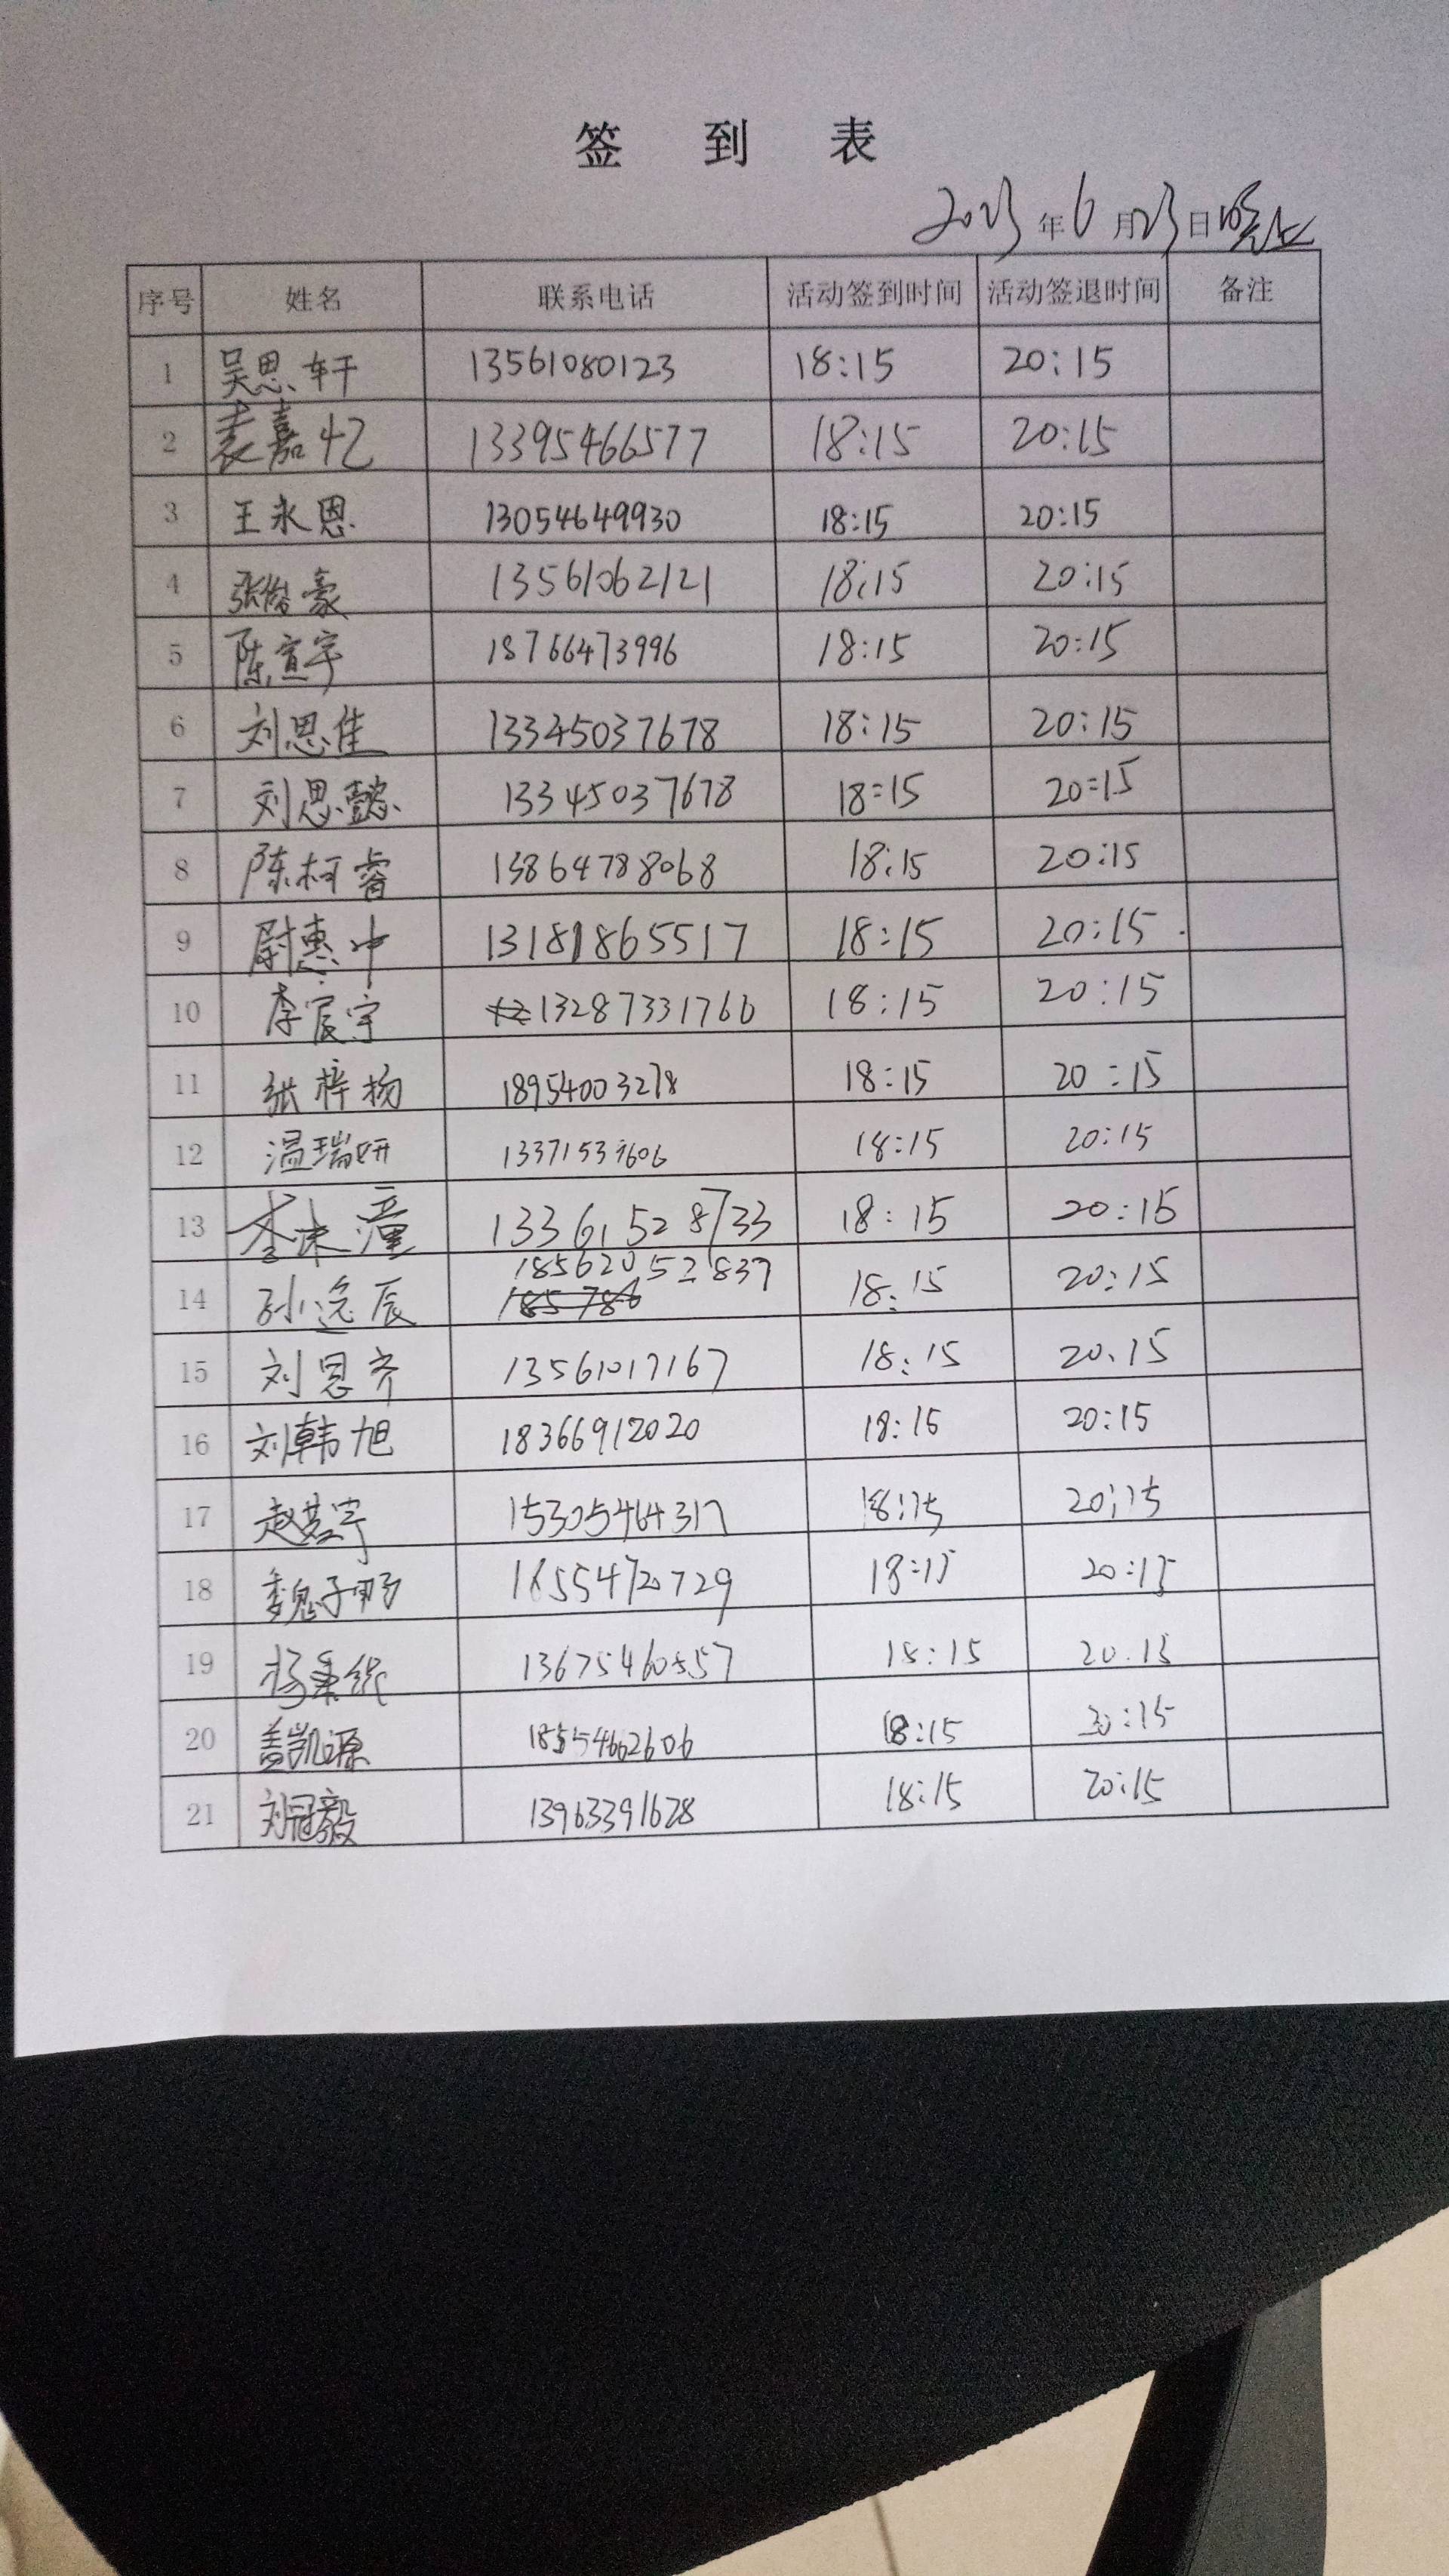 签 到 表
2023年6月23日晚上
序号 姓名 联系电话 活动签到时间 活动签退时间 备注
1 吴思轩 13561080123 18:15 20:15
2 袁嘉忆 13395466577 18:15 20:15
3 王永恩 13054649930 18:15 20:15
4 张俊豪 13561062121 18:15 20:15
5 陈宣宇 18766473996 18:15 20:15
6 刘思佳 13345037678 18:15 20:15
7 刘思懿 13345037678 18:15 20:15
8 陈柯睿 13864788068 18:15 20:15
9 尉惠中 13181865517 18:15 20:15
10 李宸宇 13287331766 18:15 20:15
11 张梓杨 18954003278 18:15 20:15
12 温瑞妍 18:15 20:15
13 李沫潼 13361528733 18:15 20:15
14 孙逸辰 18562052837 18:15 20:15
15 刘恩齐 13561017167 18:15 20:15
16 刘韩旭 18366912020 18:15 20:15
17 15305464317 18:15 20:15
18 魏子 18:15 20:15
19 杨 13675460557 18:15 20:15
20 盖凯源 18554662606 18:15 20:15
21 刘冠毅 13963391628 18:15 20:15